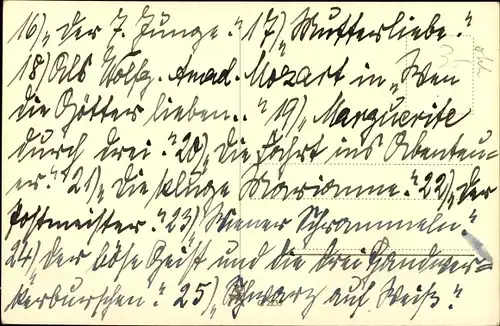 16) „Der 7. Junge." 17) „Mutterliebe."
18) Als Wolfg. Amad. Mozart in „Wen
die Götter lieben.." 19) „Marguerite
durch drei." 20) „Die Fahrt ins Abenteu-
er." 21) „Die kluge Marianne." 22) „Der
Postmeister." 23) „Wiener Schrammeln."
24) „Der böse Geist und die drei Handwer-
kerburschen." 25) „Schwarz auf Weiß."